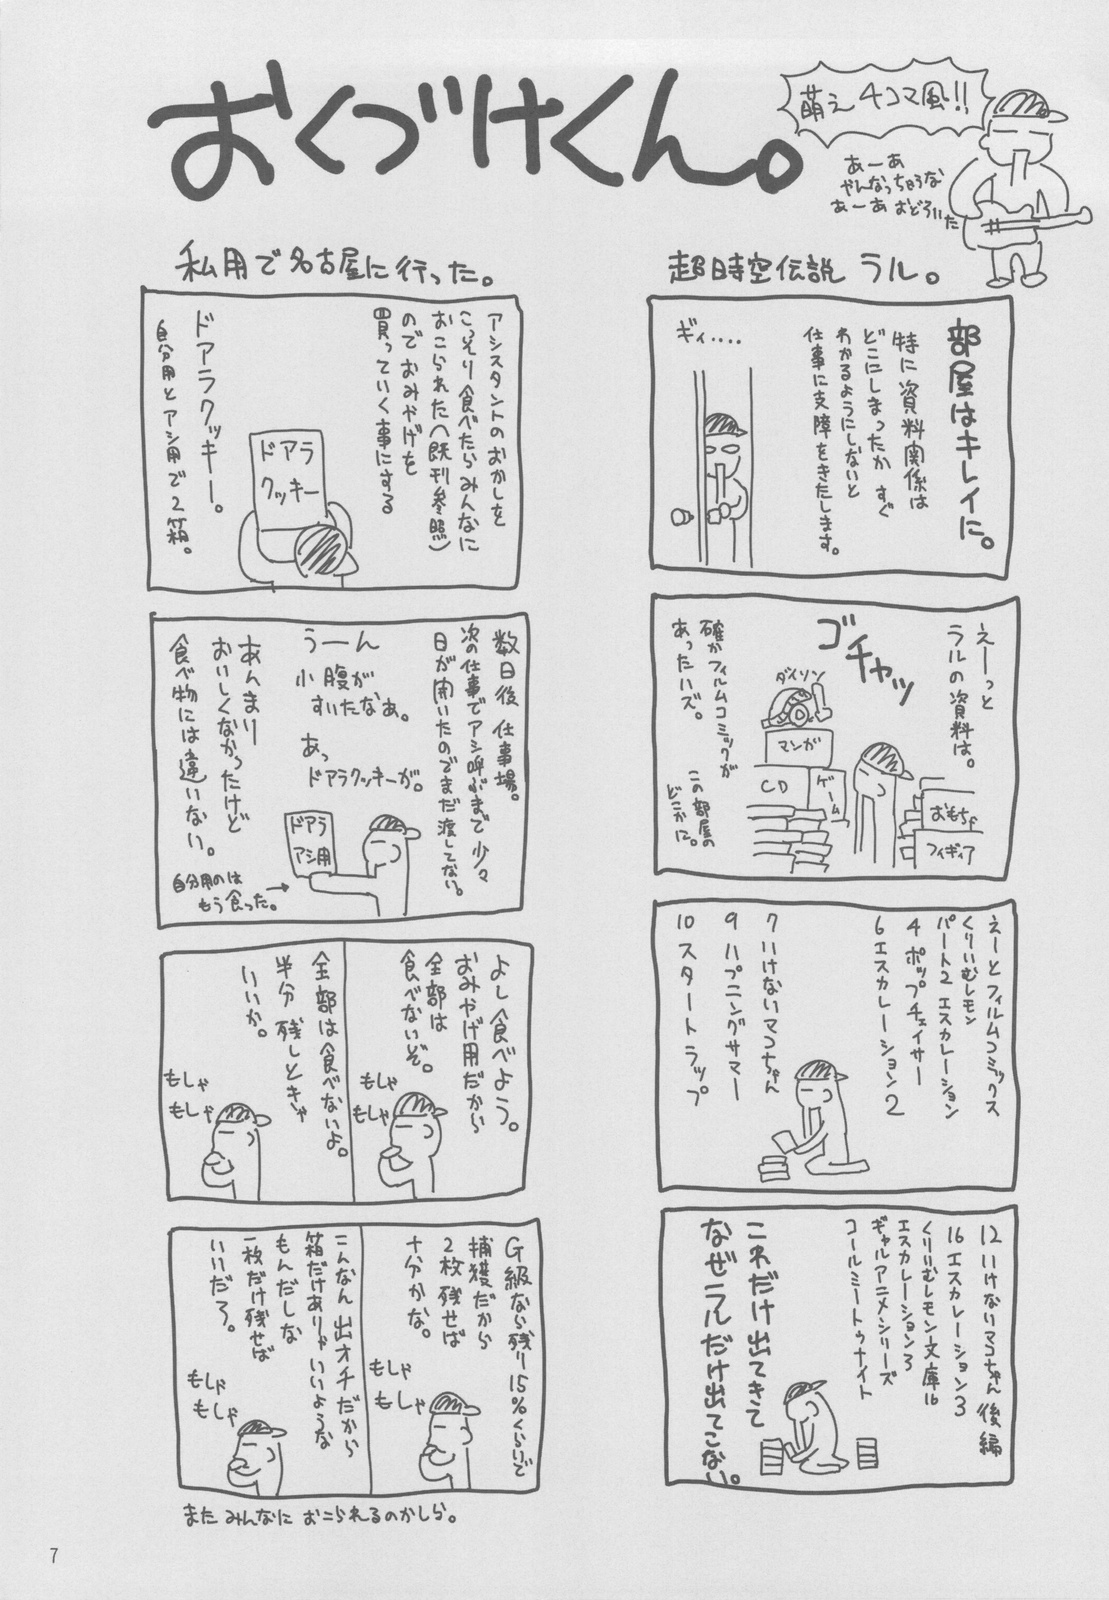 おくづけくん。
萌え4コマ風!!
あーあ
やんなっちゃうな
あーあ おどろいた
超時空伝説 ラル。
部屋はキレイに。
特に資料関係は
どこにしまったか すぐ
わかるようにしないと
仕事に支障をきたします。
ギィ‥‥
えーっと
ラルの資料は。
ゴチャッ
ダイソン
マンガ
CD
ゲーム
おもちゃ
フィギィア
確かフィルムコミックが
あったハズ。
この部屋の
どこかに。
えーとフィルムコミックス
くりいむレモン
パート2 エスカレーション
4 ポップチェイサー
6 エスカレーション2
7 いけないマコちゃん
9 ハプニングサマー
10 スタートラップ
12 いけないマコちゃん後編
16 エスカレーション3
くりいむレモン文庫16
エスカレーション3
ギャルアニメシリーズ
コールミートゥナイト
これだけ出てきて
なぜラルだけ出てこない。
私用で名古屋に行った。
アシスタントのおかしを
こっそり食べたらみんなに
おこられた(既刊参照)
ので おみやげを
買っていく事にする
ドアラクッキー。
自分用とアシ用で2箱。
ドアラ
クッキー
数日後 仕事場。
次の仕事でアシ呼ぶまで少々
日が開いたのでまだ渡してない。
うーん
小腹が
すいたなあ。
あっ
ドアラクッキーが。
ドアラ
アシ用
あんまり
おいしくなかったけど
食べ物には違いない。
自分用のは
もう食った。
よし食べよう。
おみやげ用だから
全部は
食べないぞ。
もしゃ
もしゃ
全部は食べないよ。
半分 残しときゃ
いいか。
もしゃ
もしゃ
G級なら残り15%くらいで
捕獲だから
2枚残せば
十分かな。
もしゃ
もしゃ
こんなん出オチだから
箱だけありゃいいような
もんだしな
一枚だけ残せば
いいだろ。
もしゃ
もしゃ
また みんなに おこられるのかしら。
7